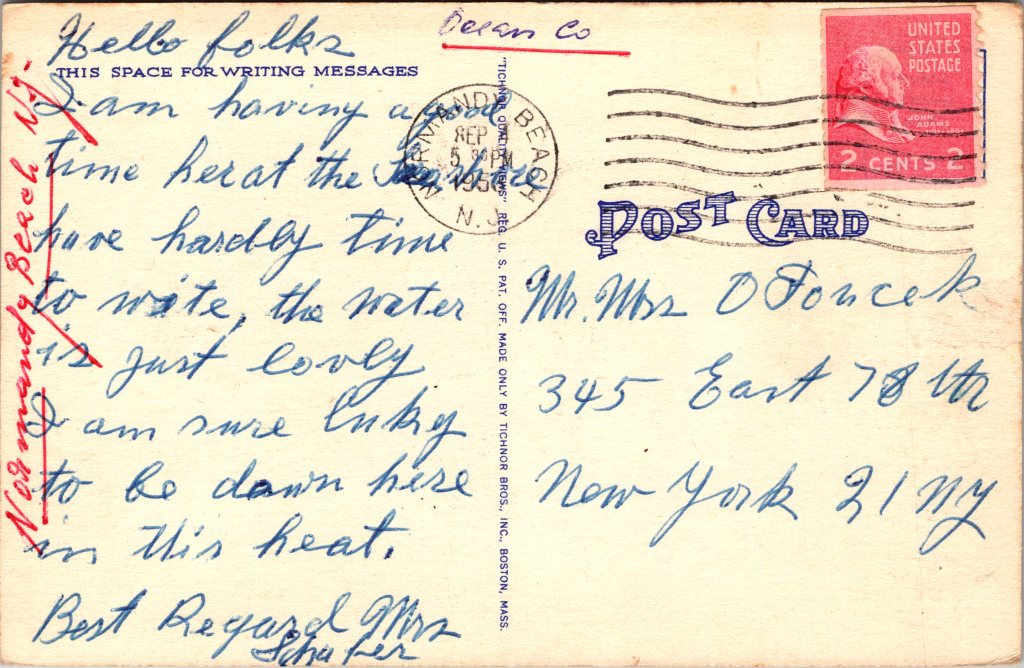 Ocean Co
Hello folks
THIS SPACE FOR WRITING MESSAGES
I am having a good
time her at the
have hardly time
to write, the water
is just lovly
I am sure lukey
to be down here
in this heat.
Best Regard Mrs
Schafer
Normandy Beach NJ-
NORMANDY BEACH
SEP
5 PM
195
N.J.
"TICHNOR QUALITY VIEWS" REG. U. S. PAT. OFF. MADE ONLY BY TICHNOR BROS., INC., BOSTON, MASS.
UNITED
STATES
POSTAGE
JOHN
ADAMS
2 CENTS 2
POST CARD
Mr. Mrs
345 East 78 Str
New York 21 NY